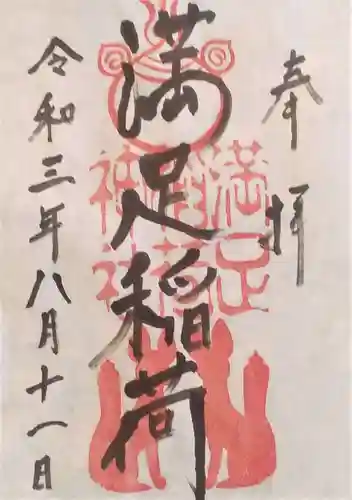 奉拝
満足稲荷
満足稲荷神社
令和三年八月十一日